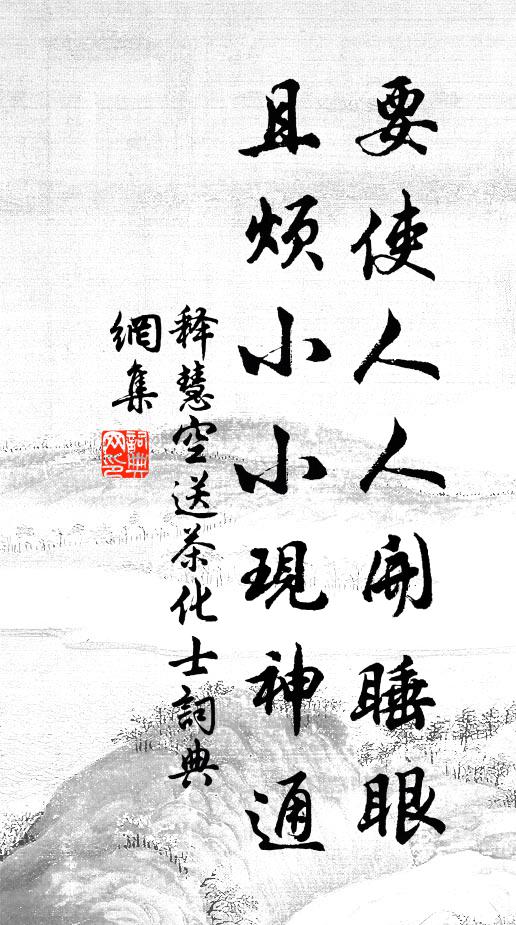 要使人人開睡眼
且煩小小現神通
释慧空送茶化士詞典
網集
詞典网印